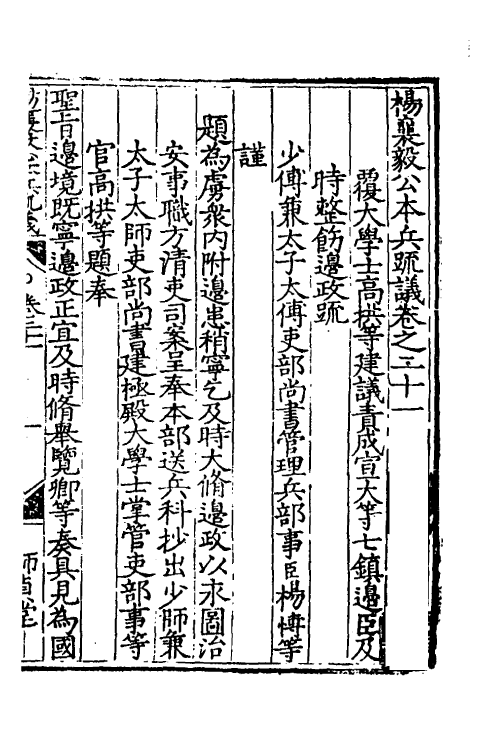 楊襄毅公本兵疏議卷之二十一
覆大學士高拱等建議責成宣大等七鎮邊臣及
時整飭邊政疏
少傅兼太子太傅吏部尚書管理兵部事臣楊博等
謹
題為虜衆內附邊患稍寧乞及時大脩邊政以求圖治
安事職方清吏司案呈奉本部送兵科抄出少師兼
太子太師吏部尚書建極殿大學士掌管吏部事等
官高拱等題奉
聖旨邊境既寧邊政正宜及時脩舉覽卿等奏具見為國
卷二十一
一
師貞堂